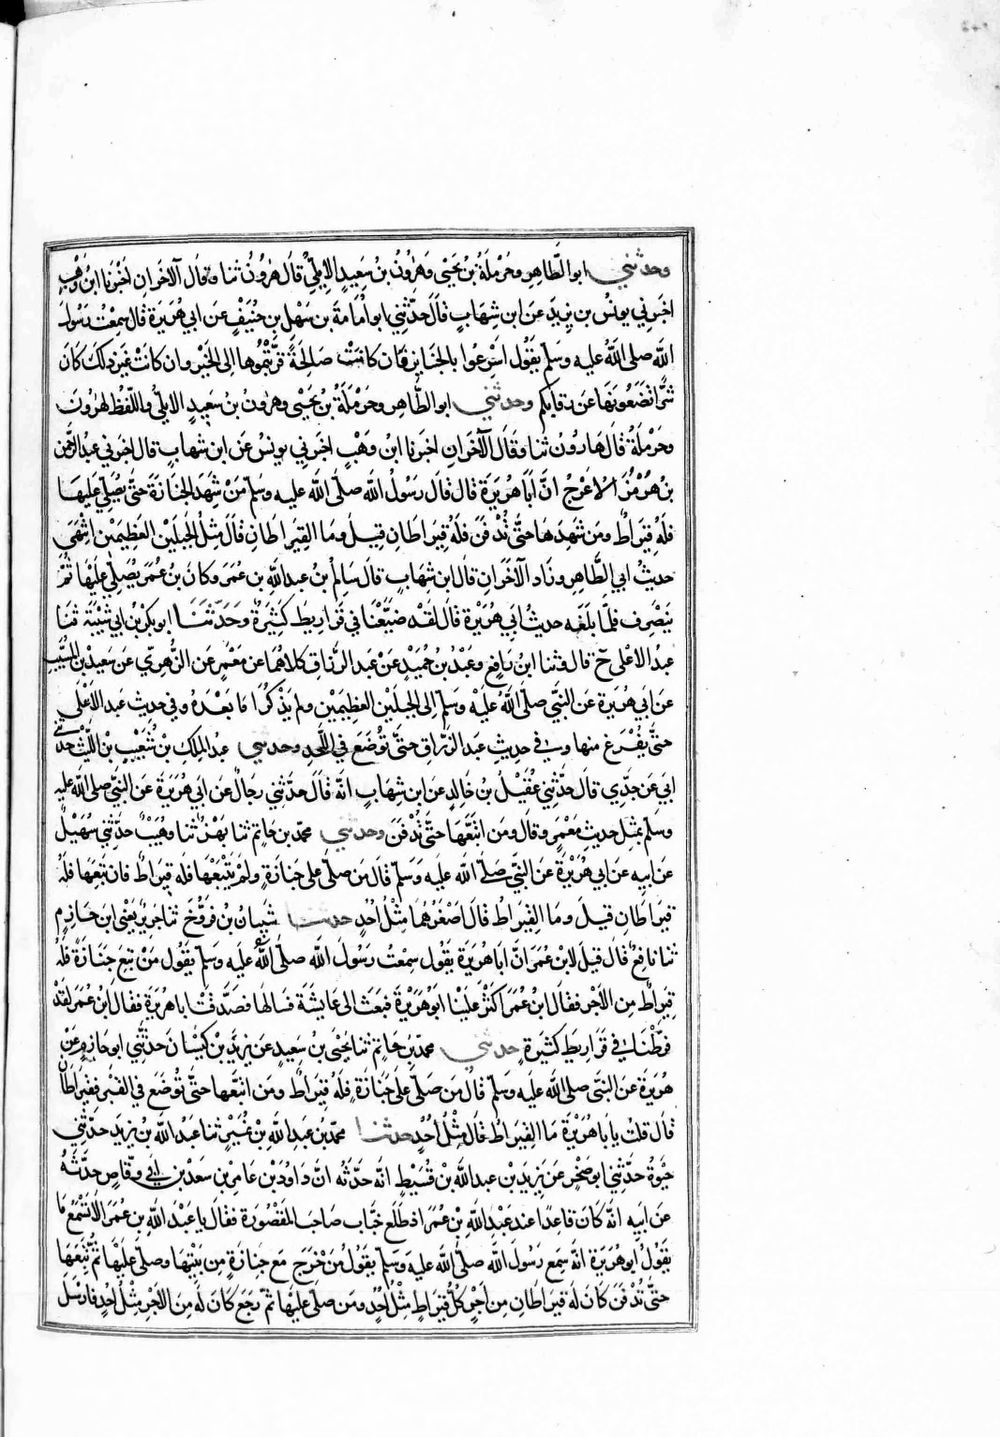 وحدثني ابو الطاهر وحرملة بن يحيى وهرون بن سعيد الايلي قال هرون ثنا وقال الآخران اخبرنا ابن وهب
اخبرني يونس بن يزيد عن ابن شهاب قال حدثني ابو امامة بن سهل بن حنيف عن ابي هريرة قال سمعت رسول
الله صلى الله عليه وسلم يقول اسرعوا بالجنايز فان كانت صالحة قربتموها الى الخير وان كانت غير ذلك كان
شرا تضعونها عن رقابكم وحدثني ابو الطاهر وحرملة بن يحيى وهرون بن سعيد الايلي واللفظ لهرون
وحرملة قال هارون ثنا وقال الآخران اخبرنا ابن وهب اخبرني يونس عن ابن شهاب قال اخبرني عبد الرحمن
بن هرمز الاعرج ان ابا هريرة قال قال رسول الله صلى الله عليه وسلم من شهد الجنازة حتى يصلي عليها
فله قيراط ومن شهدها حتى تدفن فله قيراطان قيل وما القيراطان قال مثل الجبلين العظيمين انتهى
حديث ابي الطاهر وزاد الآخران قال ابن شهاب قال سالم بن عبد الله بن عمر وكان بن عمر يصلي عليها ثم
ينصرف فلما بلغه حديث ابي هريرة قال لقد ضيعنا في قراريط كثيرة وحدثنا ابو بكر بن ابي شيبة ثنا
عبد الاعلى ح قال وثنا ابن رافع وعبد بن حميد عن عبد الرزاق كلاهما عن معمر عن الزهري عن سعيد بن المسيب
عن ابي هريرة عن النبي صلى الله عليه وسلم الى الجبلين العظيمين ولم يذكرا ما بعده وفي حديث عبد الاعلى
حتى يفرغ منها وفي حديث عبد الرزاق حتى توضع في اللحد وحدثني عبد الملك بن شعيب بن الليث حدثني
ابي عن جدي قال حدثني عقيل بن خالد عن ابن شهاب انه قال حدثني رجال عن ابي هريرة عن النبي صلى الله عليه
وسلم بمثل حديث معمر وقال ومن اتبعها حتى تدفن وحدثني محمد بن حاتم ثنا بهز ثنا وهيب حدثني سهيل
عن ابيه عن ابي هريرة عن النبي صلى الله عليه وسلم قال من صلى على جنازة ولم يتبعها فله قيراط فان تبعها فله
قيراطان قيل وما القيراط قال اصغرهما مثل احد حدثنا شيبان بن فروخ ثنا جرير يعني ابن حازم
ثنا نافع قال قيل لابن عمر ان ابا هريرة يقول سمعت رسول الله صلى الله عليه وسلم يقول من تبع جنازة فله
قيراط من الاجر فقال ابن عمر اكثر علينا ابو هريرة فبعث الى عايشة فسالها فصدقت ابا هريرة فقال ابن عمر لقد
فرطنا في قراريط كثيرة حدثني محمد بن حاتم ثنا يحيى بن سعيد عن يزيد بن كيسان حدثني ابو حازم عن
هريرة عن النبي صلى الله عليه وسلم قال من صلى على جنازة فله قيراط ومن اتبعها حتى توضع في القبر فقيراطان
قال قلت يا با هريرة ما القيراط قال مثل احد حدثنا محمد بن عبد الله بن نمير ثنا عبد الله بن يزيد حدثني
حيوة حدثني ابو صخر عن يزيد بن عبد الله بن قسيط انه حدثه ان داود بن عامر بن سعد بن ابي وقاص حدثه
عن ابيه انه كان قاعدا عند عبد الله بن عمر اذ طلع خباب صاحب المقصورة فقال يا عبد الله بن عمر الا تسمع ما
يقول ابو هريرة انه سمع رسول الله صلى الله عليه وسلم يقول من خرج مع جنازة من بيتها وصلى عليها ثم تبعها
حتى تدفن كان له قيراطان من اجر كل قيراط مثل احد ومن صلى عليها ثم رجع كان له من الاجر مثل احد فارسل